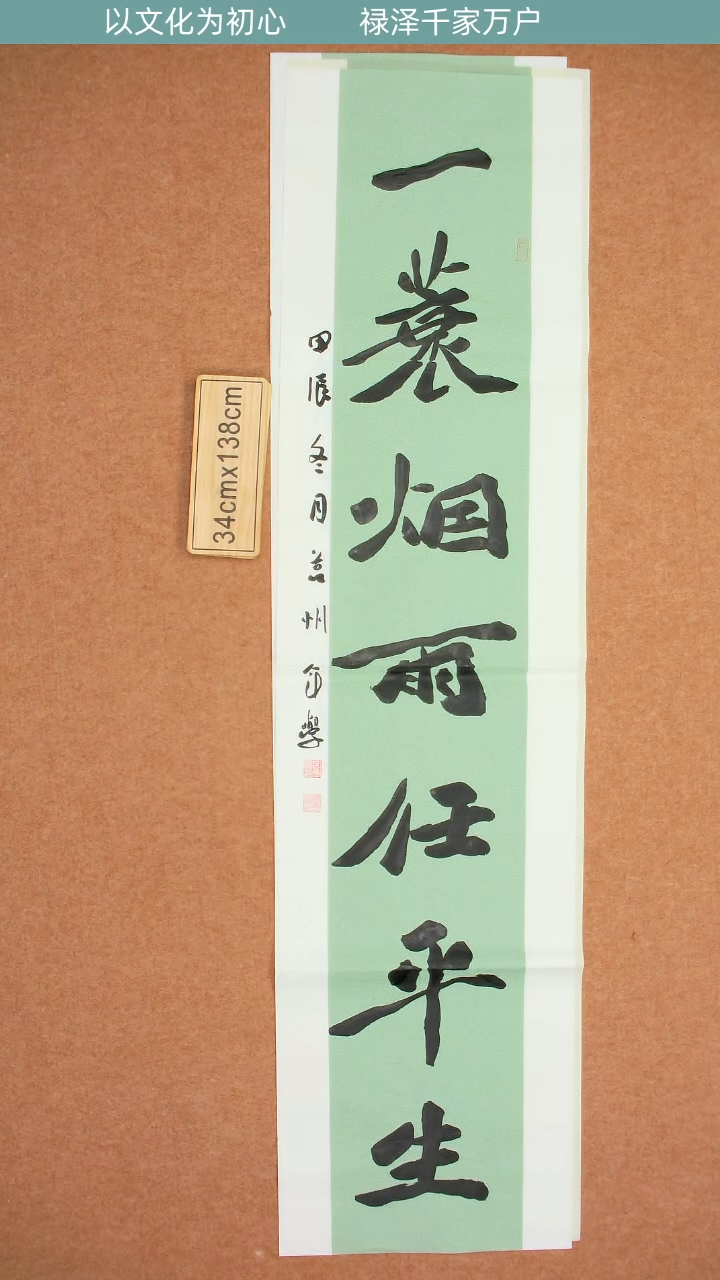 以文化为初心 禄泽千家万户
一蓑烟雨任平生
甲辰冬月兰州
34cmx138cm